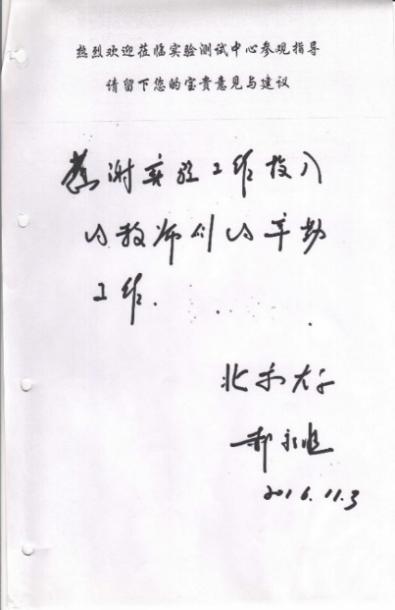 热烈欢迎莅临实验测试中心参观指导
请留下您的宝贵意见与建议
感谢实验工作投入
的教师们的辛勤
工作.
北京大学
郝永胜
2016.11.3